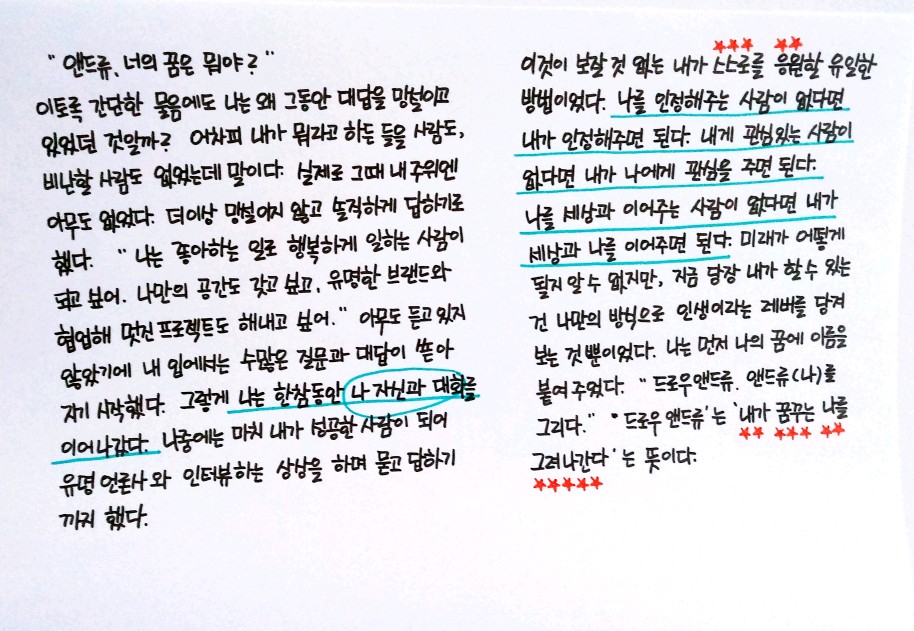 "앤드류, 너의 꿈은 뭐야?"
이토록 간단한 물음에도 나는 왜 그동안 대답을 망설이고
있었던 것일까? 어차피 내가 뭐라고 하든 들을 사람도,
비난할 사람도 없었는데 말이다. 실제로 그때 내 주위엔
아무도 없었다. 더이상 망설이지 않고 솔직하게 답하기로
했다. "나는 좋아하는 일로 행복하게 일하는 사람이
되고 싶어. 나만의 공간도 갖고 싶고, 유명한 브랜드와
협업해 멋진 프로젝트도 해내고 싶어." 아무도 듣고 있지
않았기에 내 입에서는 수많은 질문과 대답이 쏟아
지기 시작했다. 그렇게 나는 한참동안 나 자신과 대화를
이어나갔다. 나중에는 마치 내가 성공한 사람이 되어
유명 언론사와 인터뷰하는 상상을 하며 묻고 답하기
까지 했다.
이것이 보잘 것 없는 내가 스스로를 응원할 유일한
방법이었다. 나를 인정해주는 사람이 없다면
내가 인정해주면 된다. 내게 관심있는 사람이
없다면 내가 나에게 관심을 주면 된다.
나를 세상과 이어주는 사람이 없다면 내가
세상과 나를 이어주면 된다. 미래가 어떻게
될지 알 수 없지만, 지금 당장 내가 할 수 있는
건 나만의 방식으로 인생이라는 레버를 당겨
보는 것 뿐이었다. 나는 먼저 나의 꿈에 이름을
붙여 주었다. "드로우앤드류, 앤드류(나)를
그리다." '드로우 앤드류'는 '내가 꿈꾸는 나를
그려나간다'는 뜻이다.